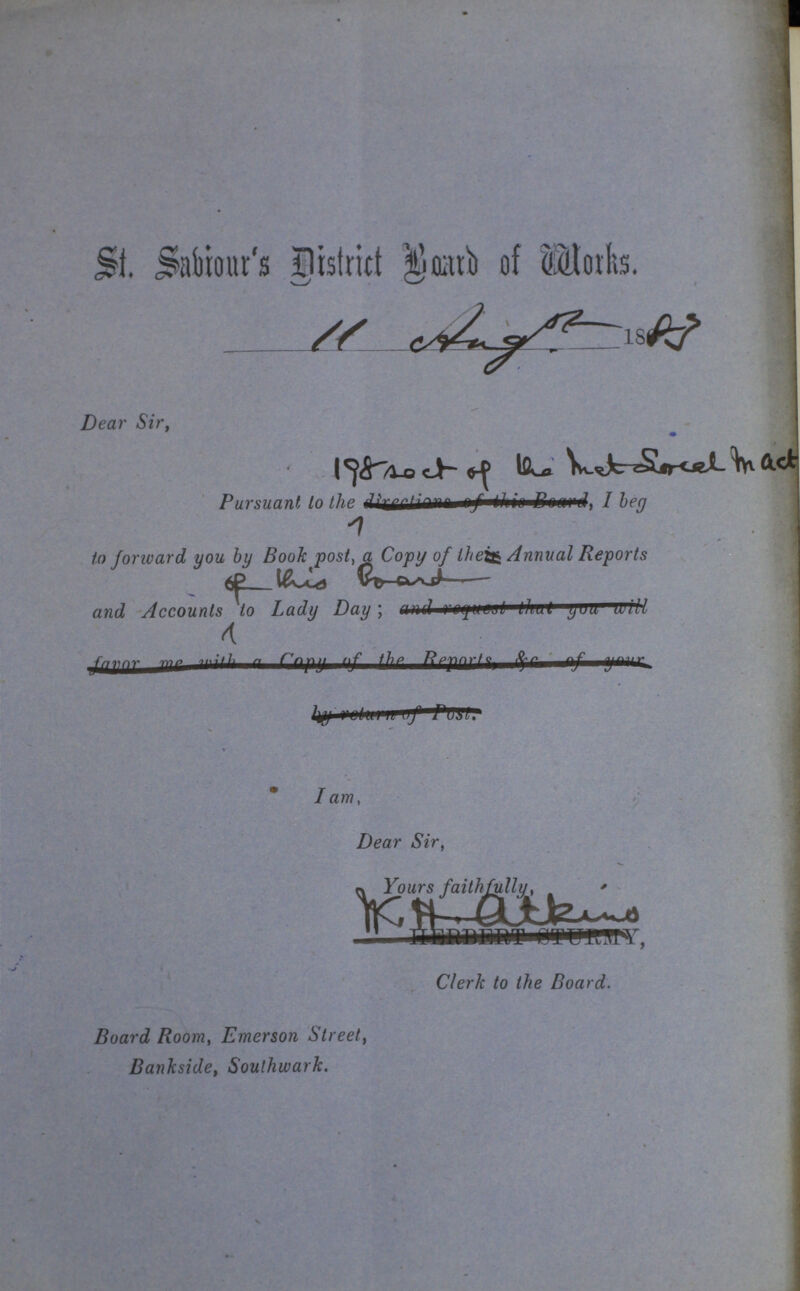 St. Saviour's District Board of Works.
11 Augst 1883
Dear Sir,
198 sect of the Met Local M Act
Pursuant to the directions of this Board, I beg
to forward you by Book post, a Copy of the Annual Reports
of this Board
and Accounts to Lady Day; and request that you will
favor me with a Copy of the Reports, &c. of your
by return of Post.
I am,
Dear Sir,
Yours faithfully,
W. H. Atkins
HERBERT STURMY,
Clerk to the Board.
Board Room, Emerson Street,
Bankside, Southwark.